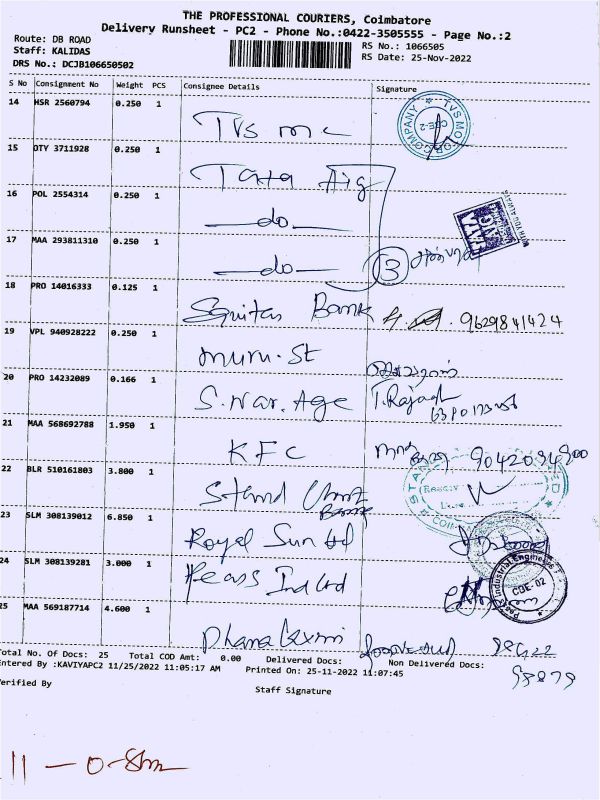 THE PROFESSIONAL COURIERS, Coimbatore
Delivery Runsheet - PC2 - Phone No.:0422-3505555 - Page No.:2
Route: DB ROAD
Staff: KALIDAS
RS No.: 1066505
DRS No.: DCJB106650502
RS Date: 25-Nov-2022
S No Consignment No Weight PCS Consignee Details Signature
14 HSR 2560794 0.250 1
TVS mc
TVS MOTOR COMPANY
CBE-2
15 OTY 3711928 0.250 1
Tata Aig
16 POL 2554314 0.250 1
—do—
WITH YOU ALWAYS
17 MAA 293811310 0.250 1
—do— 3
18 PRO 14016333 0.125 1
Bank 9629841424
19 VPL 940928222 0.250 1
mum. St
20 PRO 14232089 0.166 1
S. Nar. Age T. Rajagh
21 MAA 568692788 1.950 1
KFC
22 BLR 510161803 3.800 1
Stand Chart
Bank
23 SLM 308139012 6.850 1
Royal Sun Ltd
24 SLM 308139281 3.000 1
Peass Ind Ltd
Industrial Engineers
CBE-02
25 MAA 569187714 4.600 1
Dhanalaxmi
Total No. Of Docs: 25 Total COD Amt: 0.00 Delivered Docs: Non Delivered Docs:
Entered By :KAVIYAPC2 11/25/2022 11:05:17 AM Printed On: 25-11-2022 11:07:45
Verified By
Staff Signature